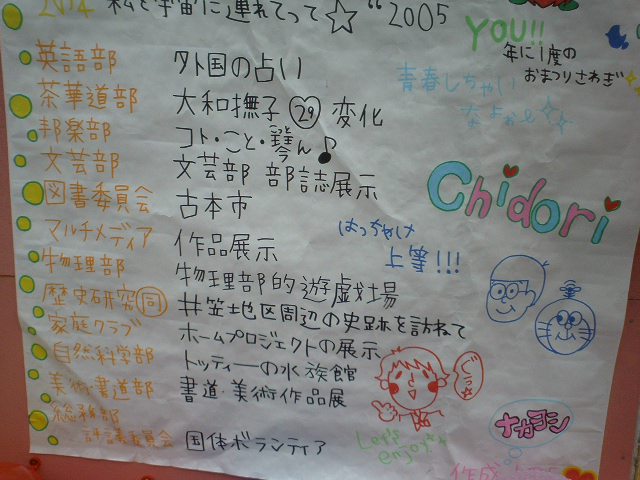 2年4 私を宇宙に連れてって☆"2005
英語部 外国の占い
茶華道部 大和撫子㉙変化
邦楽部 コト・こと・琴ん♪
文芸部 文芸部 部誌展示
図書委員会 古本市
マルチメディア 作品展示
物理部 物理部的遊戯場
歴史研究同 井笠地区周辺の史跡を訪ねて
家庭クラブ ホームプロジェクトの展示
自然科学部 トッティーの水族館
美術・書道部 書道・美術作品展
総務部
評議委員会 国体ボランティア
YOU!!
年に1度の
おまつりさわぎ
青春しちゃい
なよぉ〜
Chidori
はっちゃけ
上等!!!
Let's
enjoy
ナカヨシ
作成